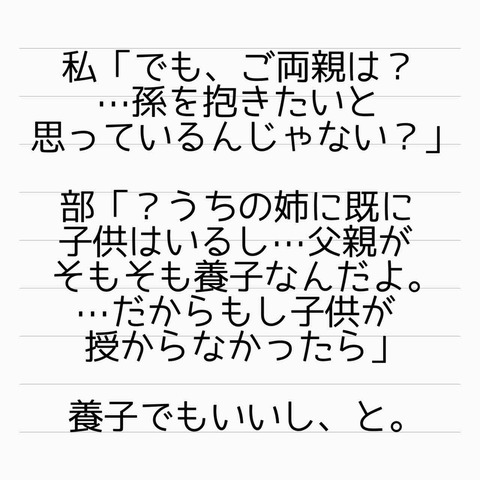 私「でも、ご両親は？
…孫を抱きたいと
思っているんじゃない？」
部「？うちの姉に既に
子供はいるし…父親が
そもそも養子なんだよ。
…だからもし子供が
授からなかったら」
養子でもいいし、と。